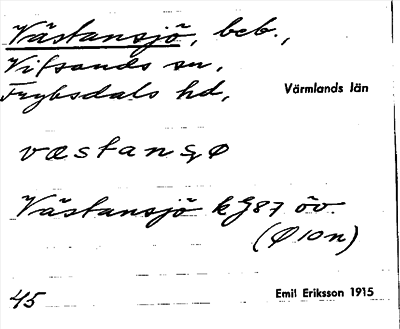 Västansjö, beb.,
Vitsands sn,
Fryksdals hd,
Värmlands län
væstanʂø
Västansjö k G87 öv.
(Ø 10 n)
45
Emil Eriksson 1915